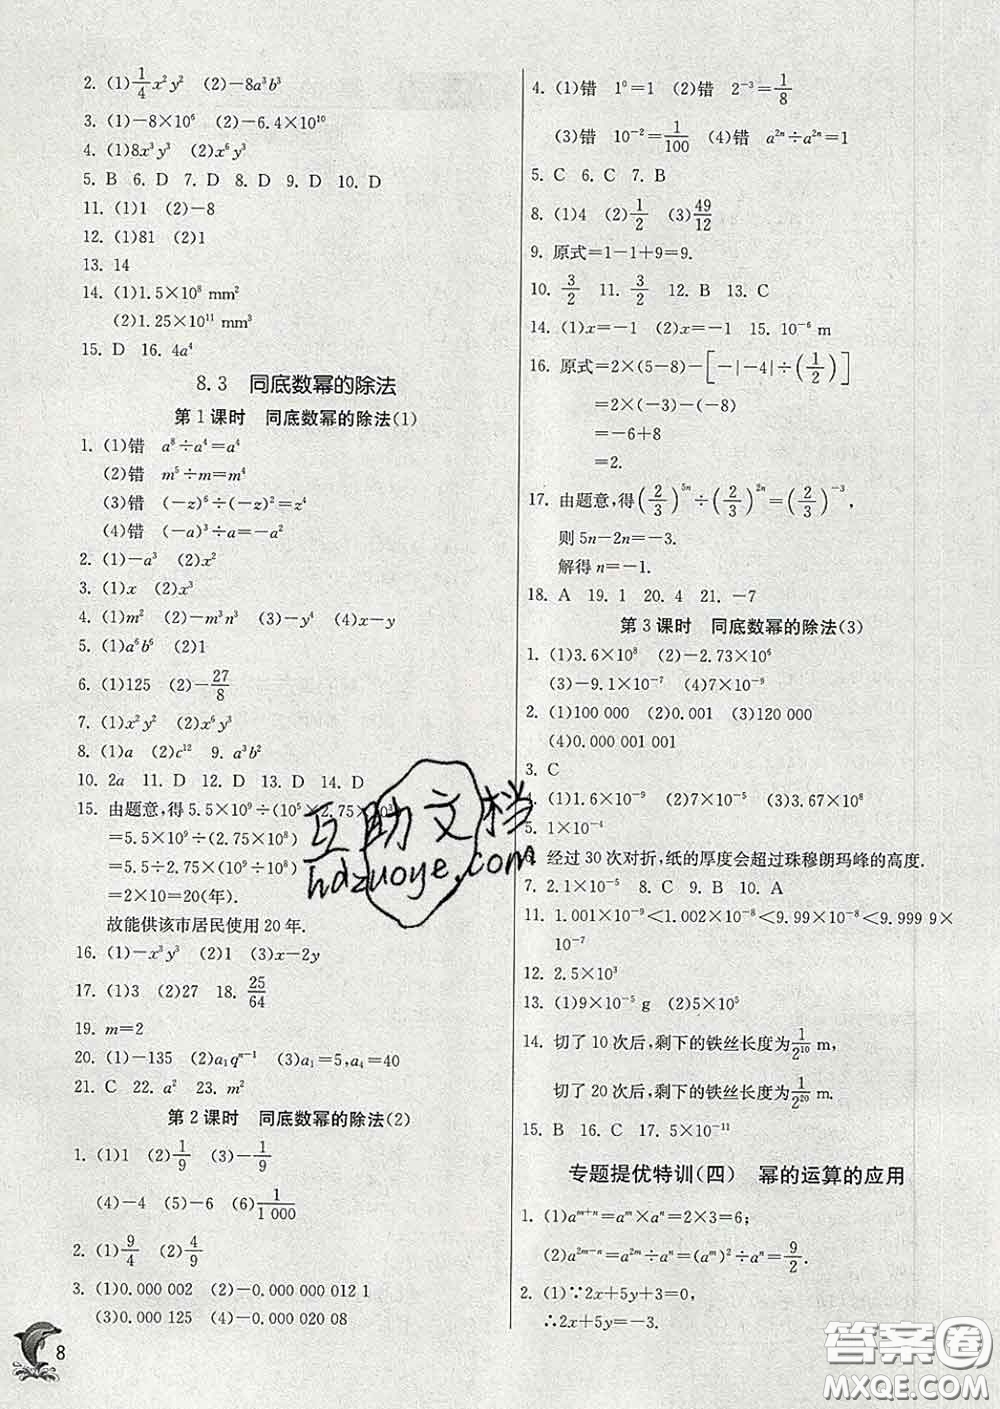 2. (1)1/4x²y² (2)-8a³b³
3. (1)-8×10⁶ (2)-6.4×10¹⁰
4. (1)8x³y³ (2)x⁶y³
5. B 6. D 7. D 8. D 9. D 10. D
11. (1)1 (2)-8
12. (1)81 (2)1
13. 14
14. (1)1.5×10⁸ mm²
(2)1.25×10¹¹ mm³
15. D 16. 4a⁴
8.3 同底数幂的除法
第1课时 同底数幂的除法(1)
1. (1)错 a⁸÷a⁴=a⁴
(2)错 m⁵÷m=m⁴
(3)错 (-z)⁶÷(-z)²=z⁴
(4)错 (-a)³÷a=-a²
2. (1)-a³ (2)x²
3. (1)x (2)x²
4. (1)m² (2)-m³n³ (3)-y⁴ (4)x-y
5. (1)a⁶b⁶ (2)1
6. (1)125 (2)-27/8
7. (1)x²y² (2)x⁶y³
8. (1)a (2)c¹² 9. a³b²
10. 2a 11. D 12. D 13. D 14. D
15. 由题意,得5.5×10⁹÷(10⁵×2.75×10³)
=5.5×10⁹÷(2.75×10⁸)
=5.5÷2.75×(10⁹÷10⁸)
=2×10=20(年).
故能供该市居民使用20年.
16. (1)-x³y³ (2)1 (3)x-2y
17. (1)3 (2)27 18. 25/64
19. m=2
20. (1)-135 (2)a₁qⁿ⁻¹ (3)a₁=5,a₄=40
21. C 22. a² 23. m²
第2课时 同底数幂的除法(2)
1. (1)1 (2)1/9 (3)-1/9
(4)-4 (5)-6 (6)1/1 000
2. (1)9/4 (2)4/9
3. (1)0.000 002 (2)-0.000 000 012 1
(3)0.000 125 (4)-0.000 020 08
8
4. (1)错 1⁰=1 (2)错 2⁻³=1/8
(3)错 10⁻²=1/100 (4)错 a²ⁿ÷a²ⁿ=1
5. C 6. C 7. B
8. (1)4 (2)1/2 (3)49/12
9. 原式=1-1+9=9.
10. 3/2 11. 3/2 12. B 13. C
14. (1)x=-1 (2)x=-1 15. 10⁻⁶ m
16. 原式=2×(5-8)-[-|-4|÷(1/2)]
=2×(-3)-(-8)
=-6+8
=2.
17. 由题意,得(2/3)⁵ⁿ÷(2/3)²ⁿ=(2/3)⁻³,
则5n-2n=-3.
解得n=-1.
18. A 19. 1 20. 4 21. -7
第3课时 同底数幂的除法(3)
1. (1)3.6×10⁸ (2)-2.73×10⁶
(3)-9.1×10⁻⁷ (4)7×10⁻⁹
2. (1)100 000 (2)0.001 (3)120 000
(4)0.000 001 001
3. C
. (1)1.6×10⁻⁹ (2)7×10⁻⁹ (3)1.67×10⁻³
5. 1×10⁻⁴
6. 经过30次对折,纸的厚度会超过珠穆朗玛峰的高度.
7. 2.1×10⁻⁵ 8. C 9. B 10. A
11. 1.001×10⁻⁸<1.002×10⁻⁸<9.99×10⁻⁸<9.999 9×
10⁻⁷
12. 2.5×10³
13. (1)9×10⁻⁵ g (2)5×10⁵
14. 切了10次后,剩下的铁丝长度为1/2¹⁰ m,
切了20次后,剩下的铁丝长度为1/2²⁰ m.
15. B 16. C 17. 5×10⁻¹¹
专题提优特训(四) 幂的运算的应用
1. (1)aᵐ⁺ⁿ=aᵐ×aⁿ=2×3=6;
(2)a²ᵐ⁻ⁿ=a²ᵐ÷aⁿ=(aᵐ)²÷aⁿ=9/2.
2. (1)∵2x+5y+3=0,
∴2x+5y=-3.
互助文档
hdzuoye.com
答案圈
MXQE.COM